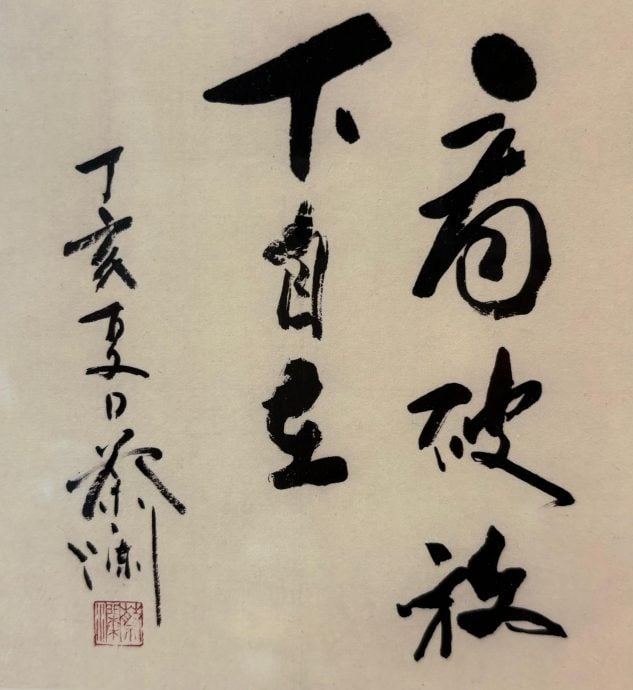 看破放
下自在
丁亥夏日蔡澜
蔡瀾